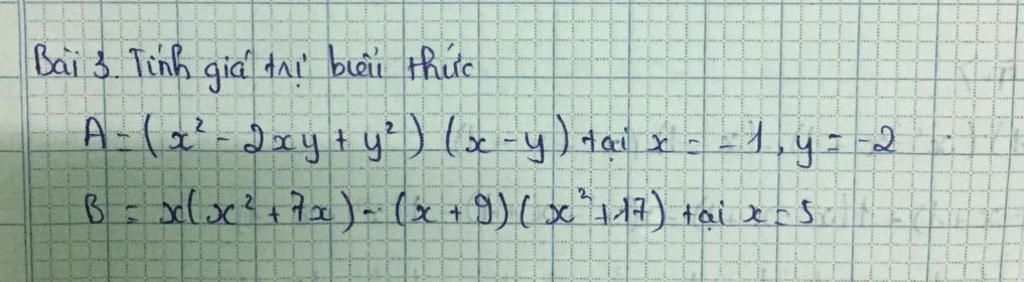 Bài 3. Tính giá trị biểu thức
A = (x² - 2xy + y²) (x - y) tại x = -1, y = -2
B = x(x² + 7x) - (x + 9)(x² + 17) tại x = 5